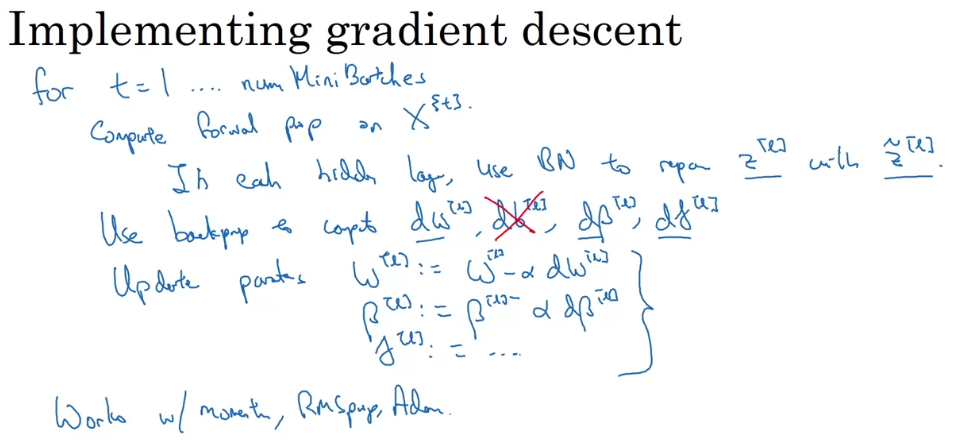 Implementing gradient descent
for t = 1 .... num Mini Batches
Compute forward prop on X^{t}.
In each hidden layer, use BN to repar z^[l] with z̃^[l].
Use backprop to comput dw^[l], db^[l], dβ^[l], dγ^[l]
Update params w^[l] := w^[l] - α dw^[l]
β^[l] := β^[l] - α dβ^[l]
γ^[l] := ....
Works w/ momentum, RMSprop, Adam.